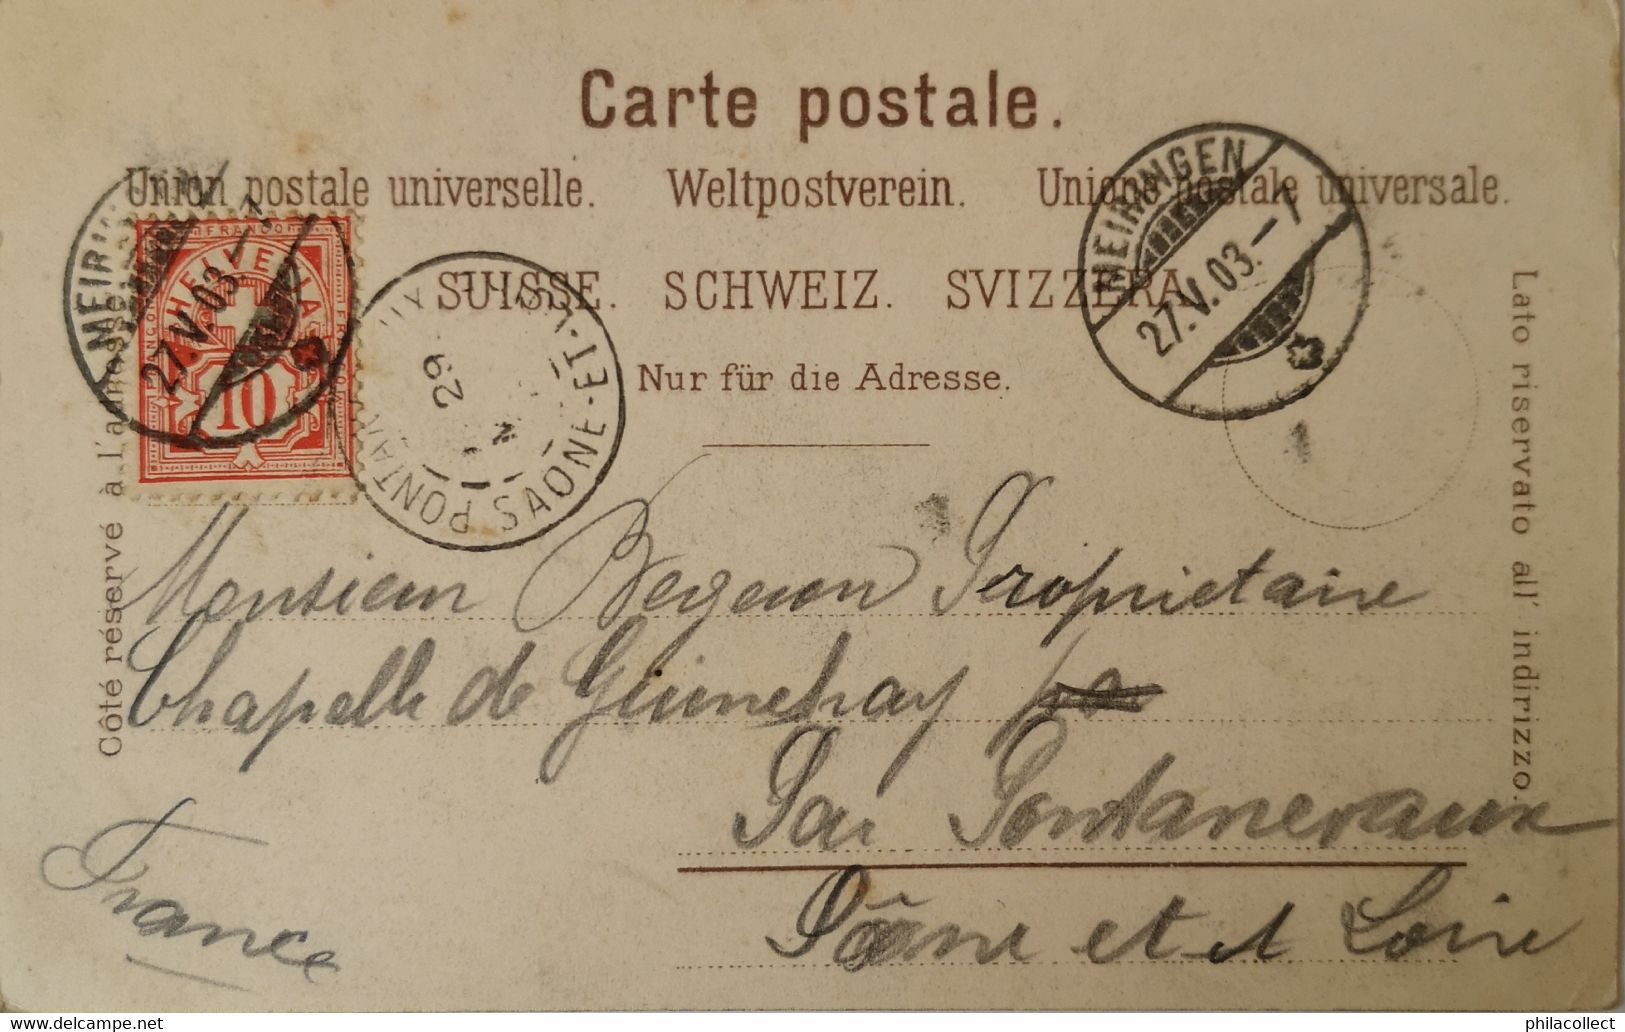 Carte postale.
Union postale universelle. Weltpostverein. Unione postale universale.
SUISSE. SCHWEIZ. SVIZZERA.
Nur für die Adresse.
Côté réservé à l'adresse
Lato riservato all' indirizzo.
FRANCO
HELVETIA
10
MEIRINGEN
27.V.03.-7
MEIRINGEN
27.V.03.-7
29
SAONE-ET-LOIRE
Monsieur Bergeron Propriétaire
Chapelle de Guinchay
Par Pontanevaux
Saône et Loire
France
philacollect